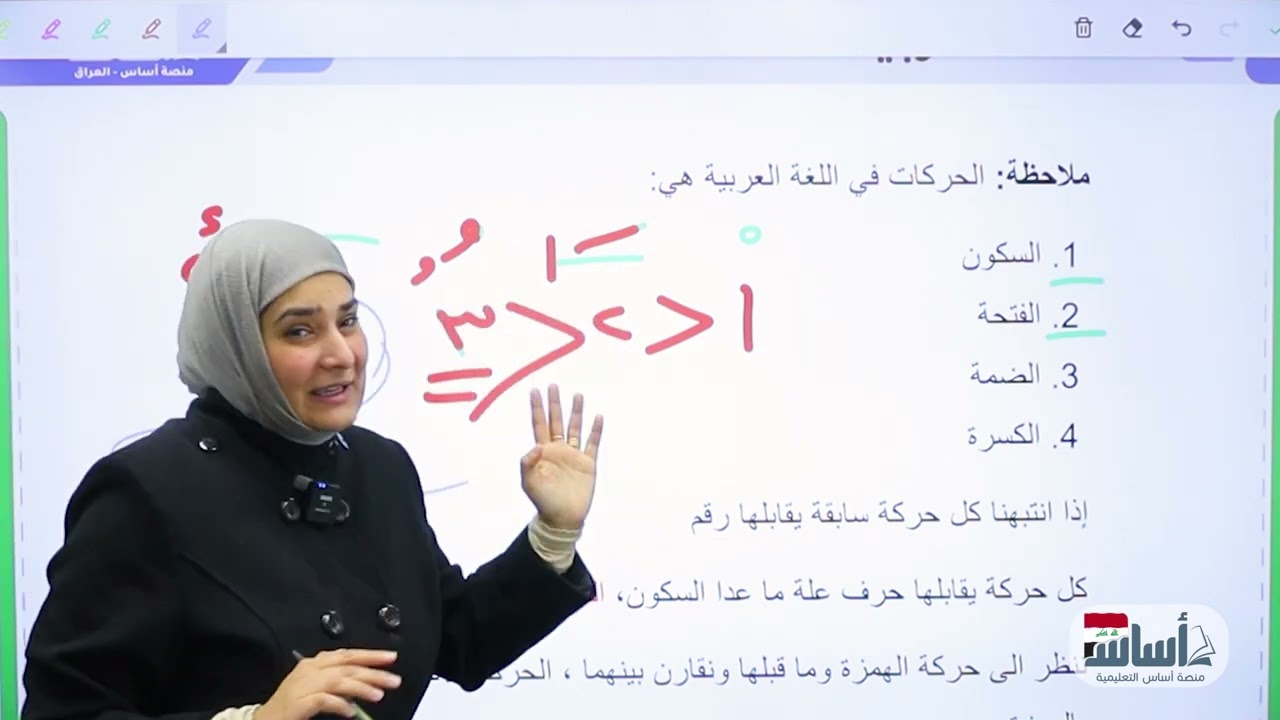 منصة أساس - العراق
ملاحظة: الحركات في اللغة العربية هي:
1. السكون
2. الفتحة
3. الضمة
4. الكسرة
١ > ٢ > ٣
إذا انتبهنا كل حركة سابقة يقابلها رقم
كل حركة يقابلها حرف علة ما عدا السكون،
ننظر الى حركة الهمزة وما قبلها ونقارن بينهما ،
أساس
منصة أساس التعليمية